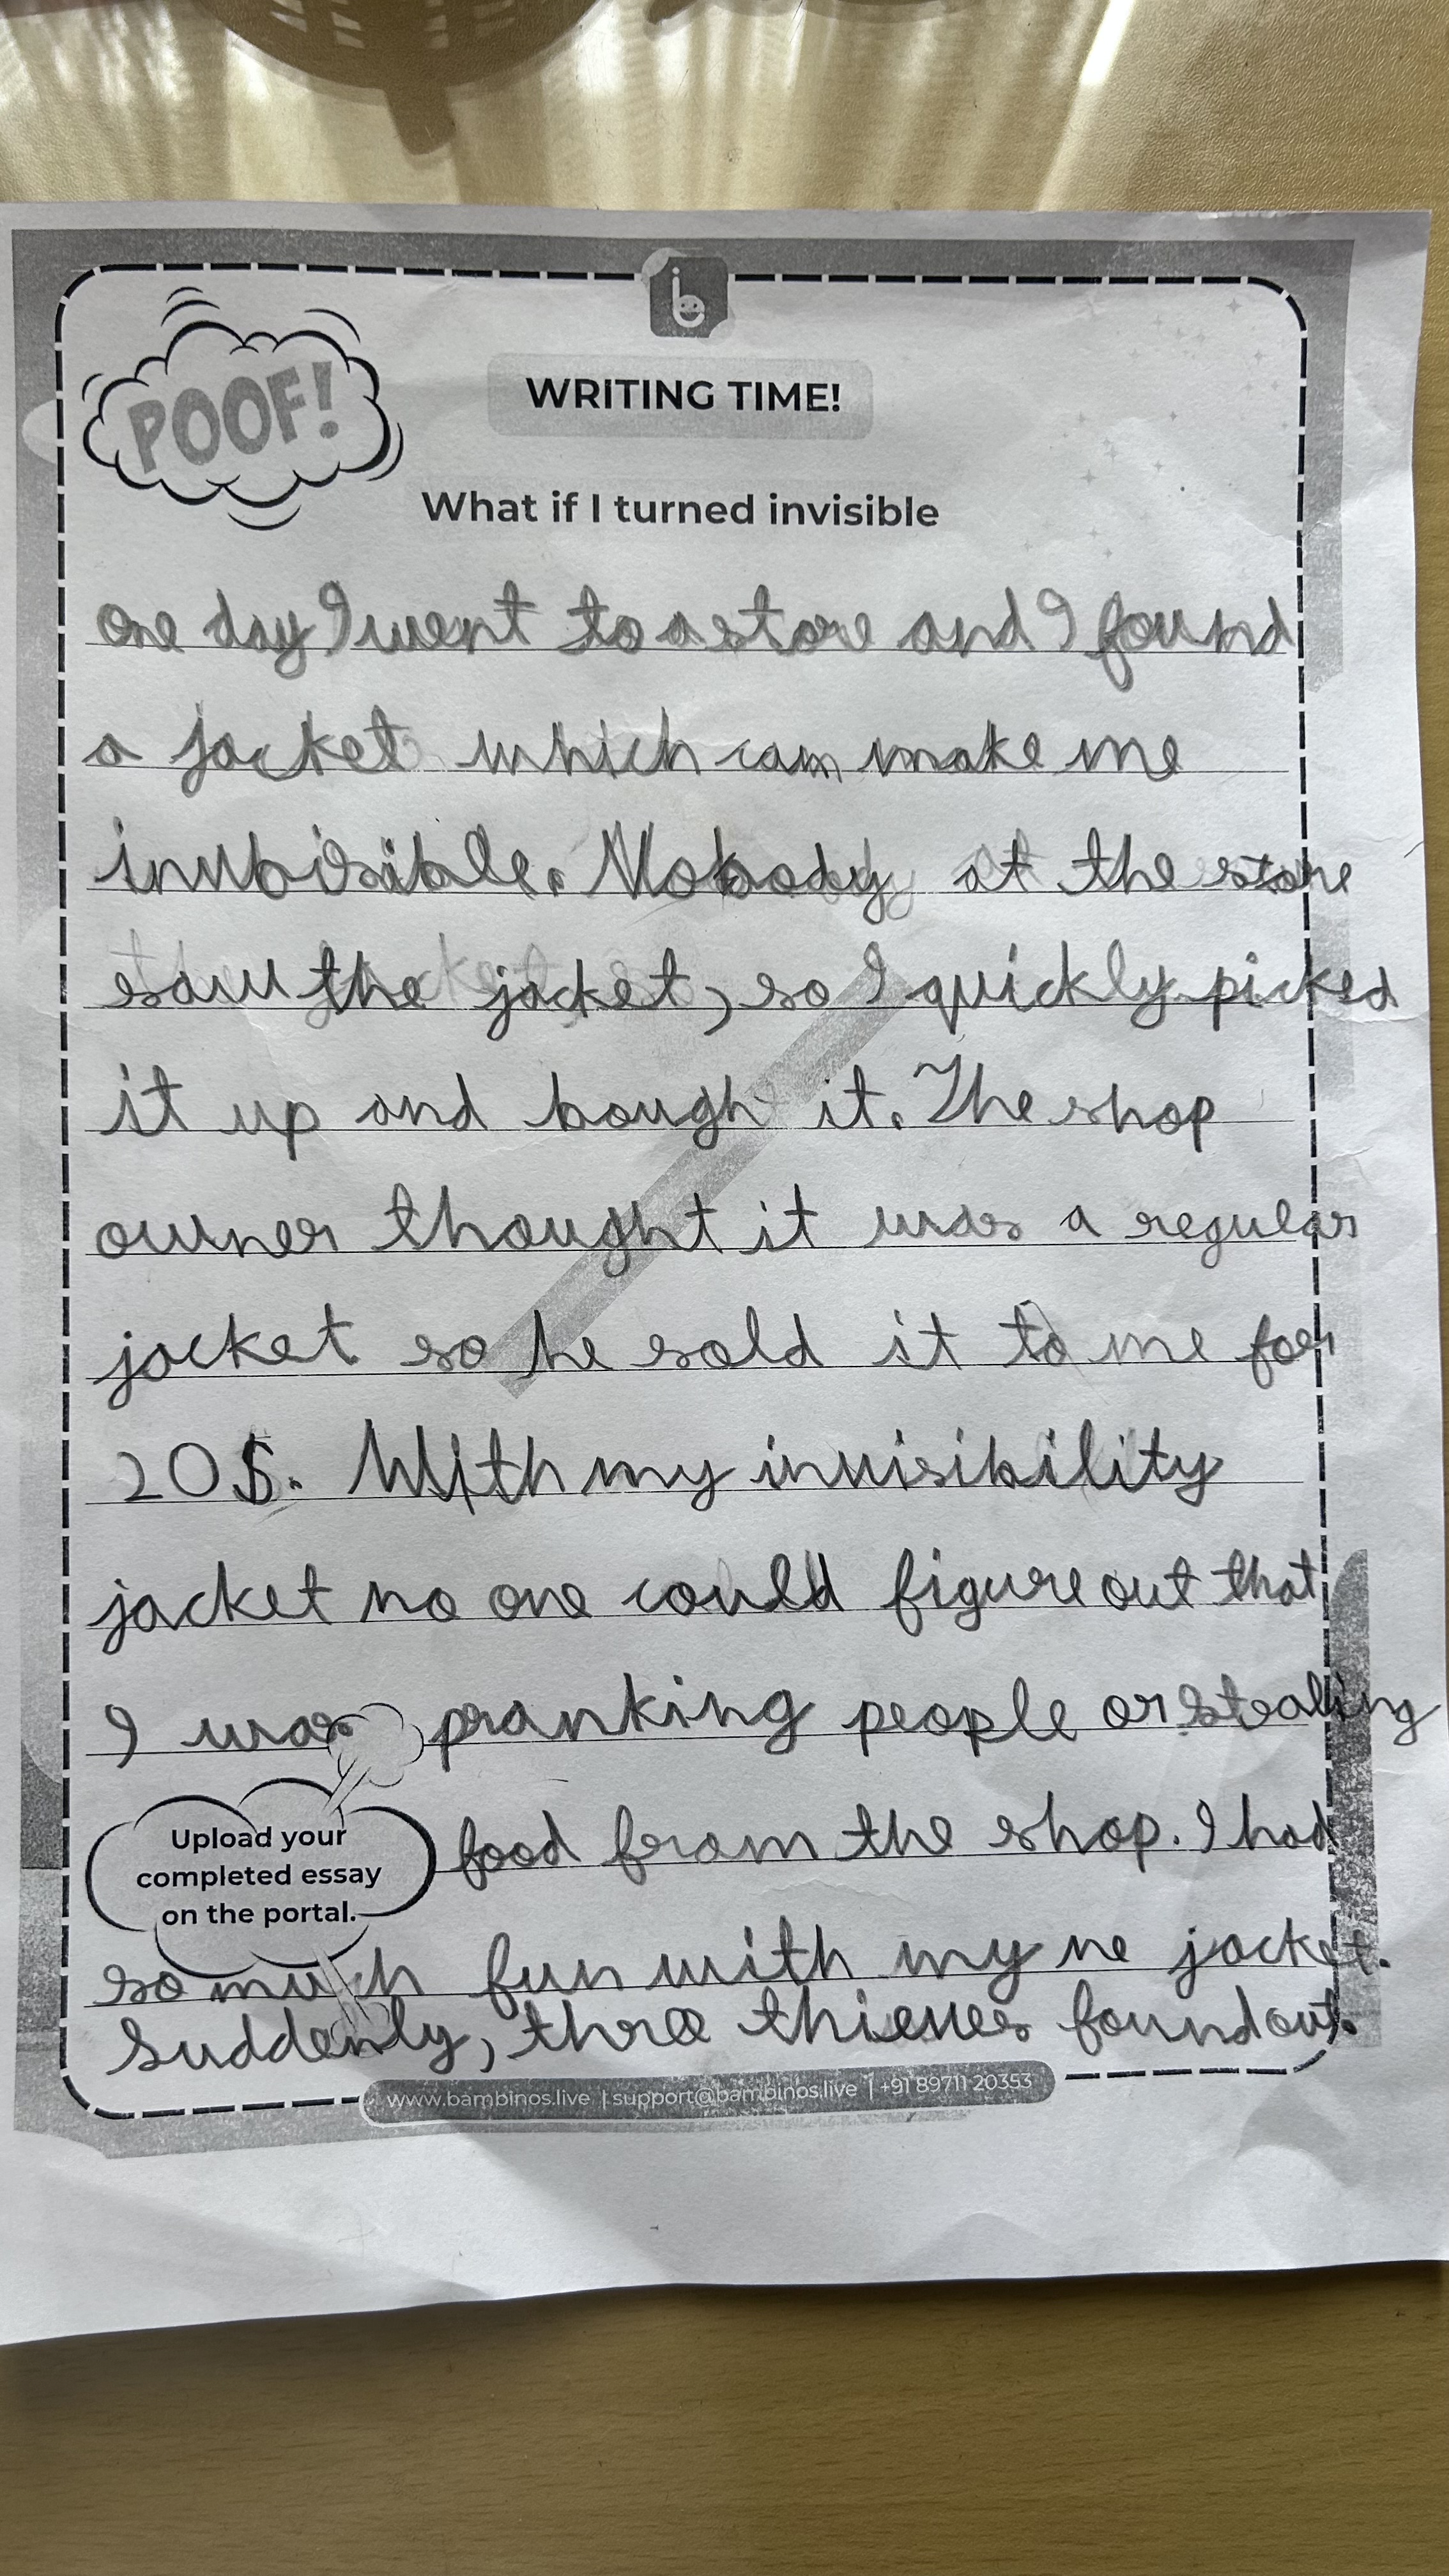 POOF!
WRITING TIME!
What if I turned invisible
One day I went to a store and I found
a jacket which can make me
invisible. Nobody at the store
saw the jacket, so I quickly picked
it up and bough it. The shop
owner thought it was a regular
jacket so he sold it to me for
20$. With my invisibility
jacket no one could figure out that
I was pranking people or stealing
food from the shop. I had
so much fun with my ne jacket.
Suddenly, three thieves found out.
Upload your
completed essay
on the portal.
www.bambinos.live | support@bambinos.live | +91 89711 20353